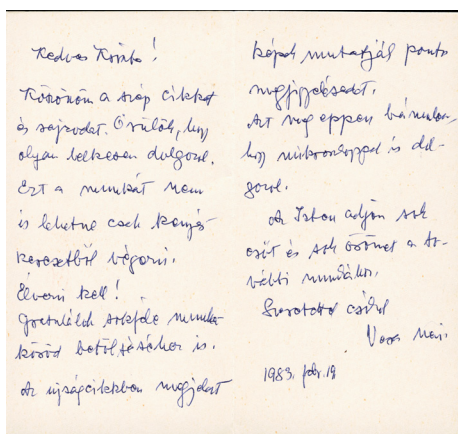 Kedves Kriszta!
Köszönöm a szép cikket
és sorodat. Örülök, hogy
olyan lelkesen dolgozol.
Ezt a munkát nem
is lehetne csak kenyér-
keresetből végezni.
Élvezni kell!
Gratulálok sokféle munka-
köröd betöltéséhez is.
Az újságcikkben megjelent
képek mutatják pontos
megfigyelésedet.
Azt meg éppen bámulom,
hogy mikroszkóppal is dol-
gozol.
Az Isten adjon sok
erőt és sok örömet a to-
vábbi munkához.
Szeretettel csókol
Vass
1983. febr. 19